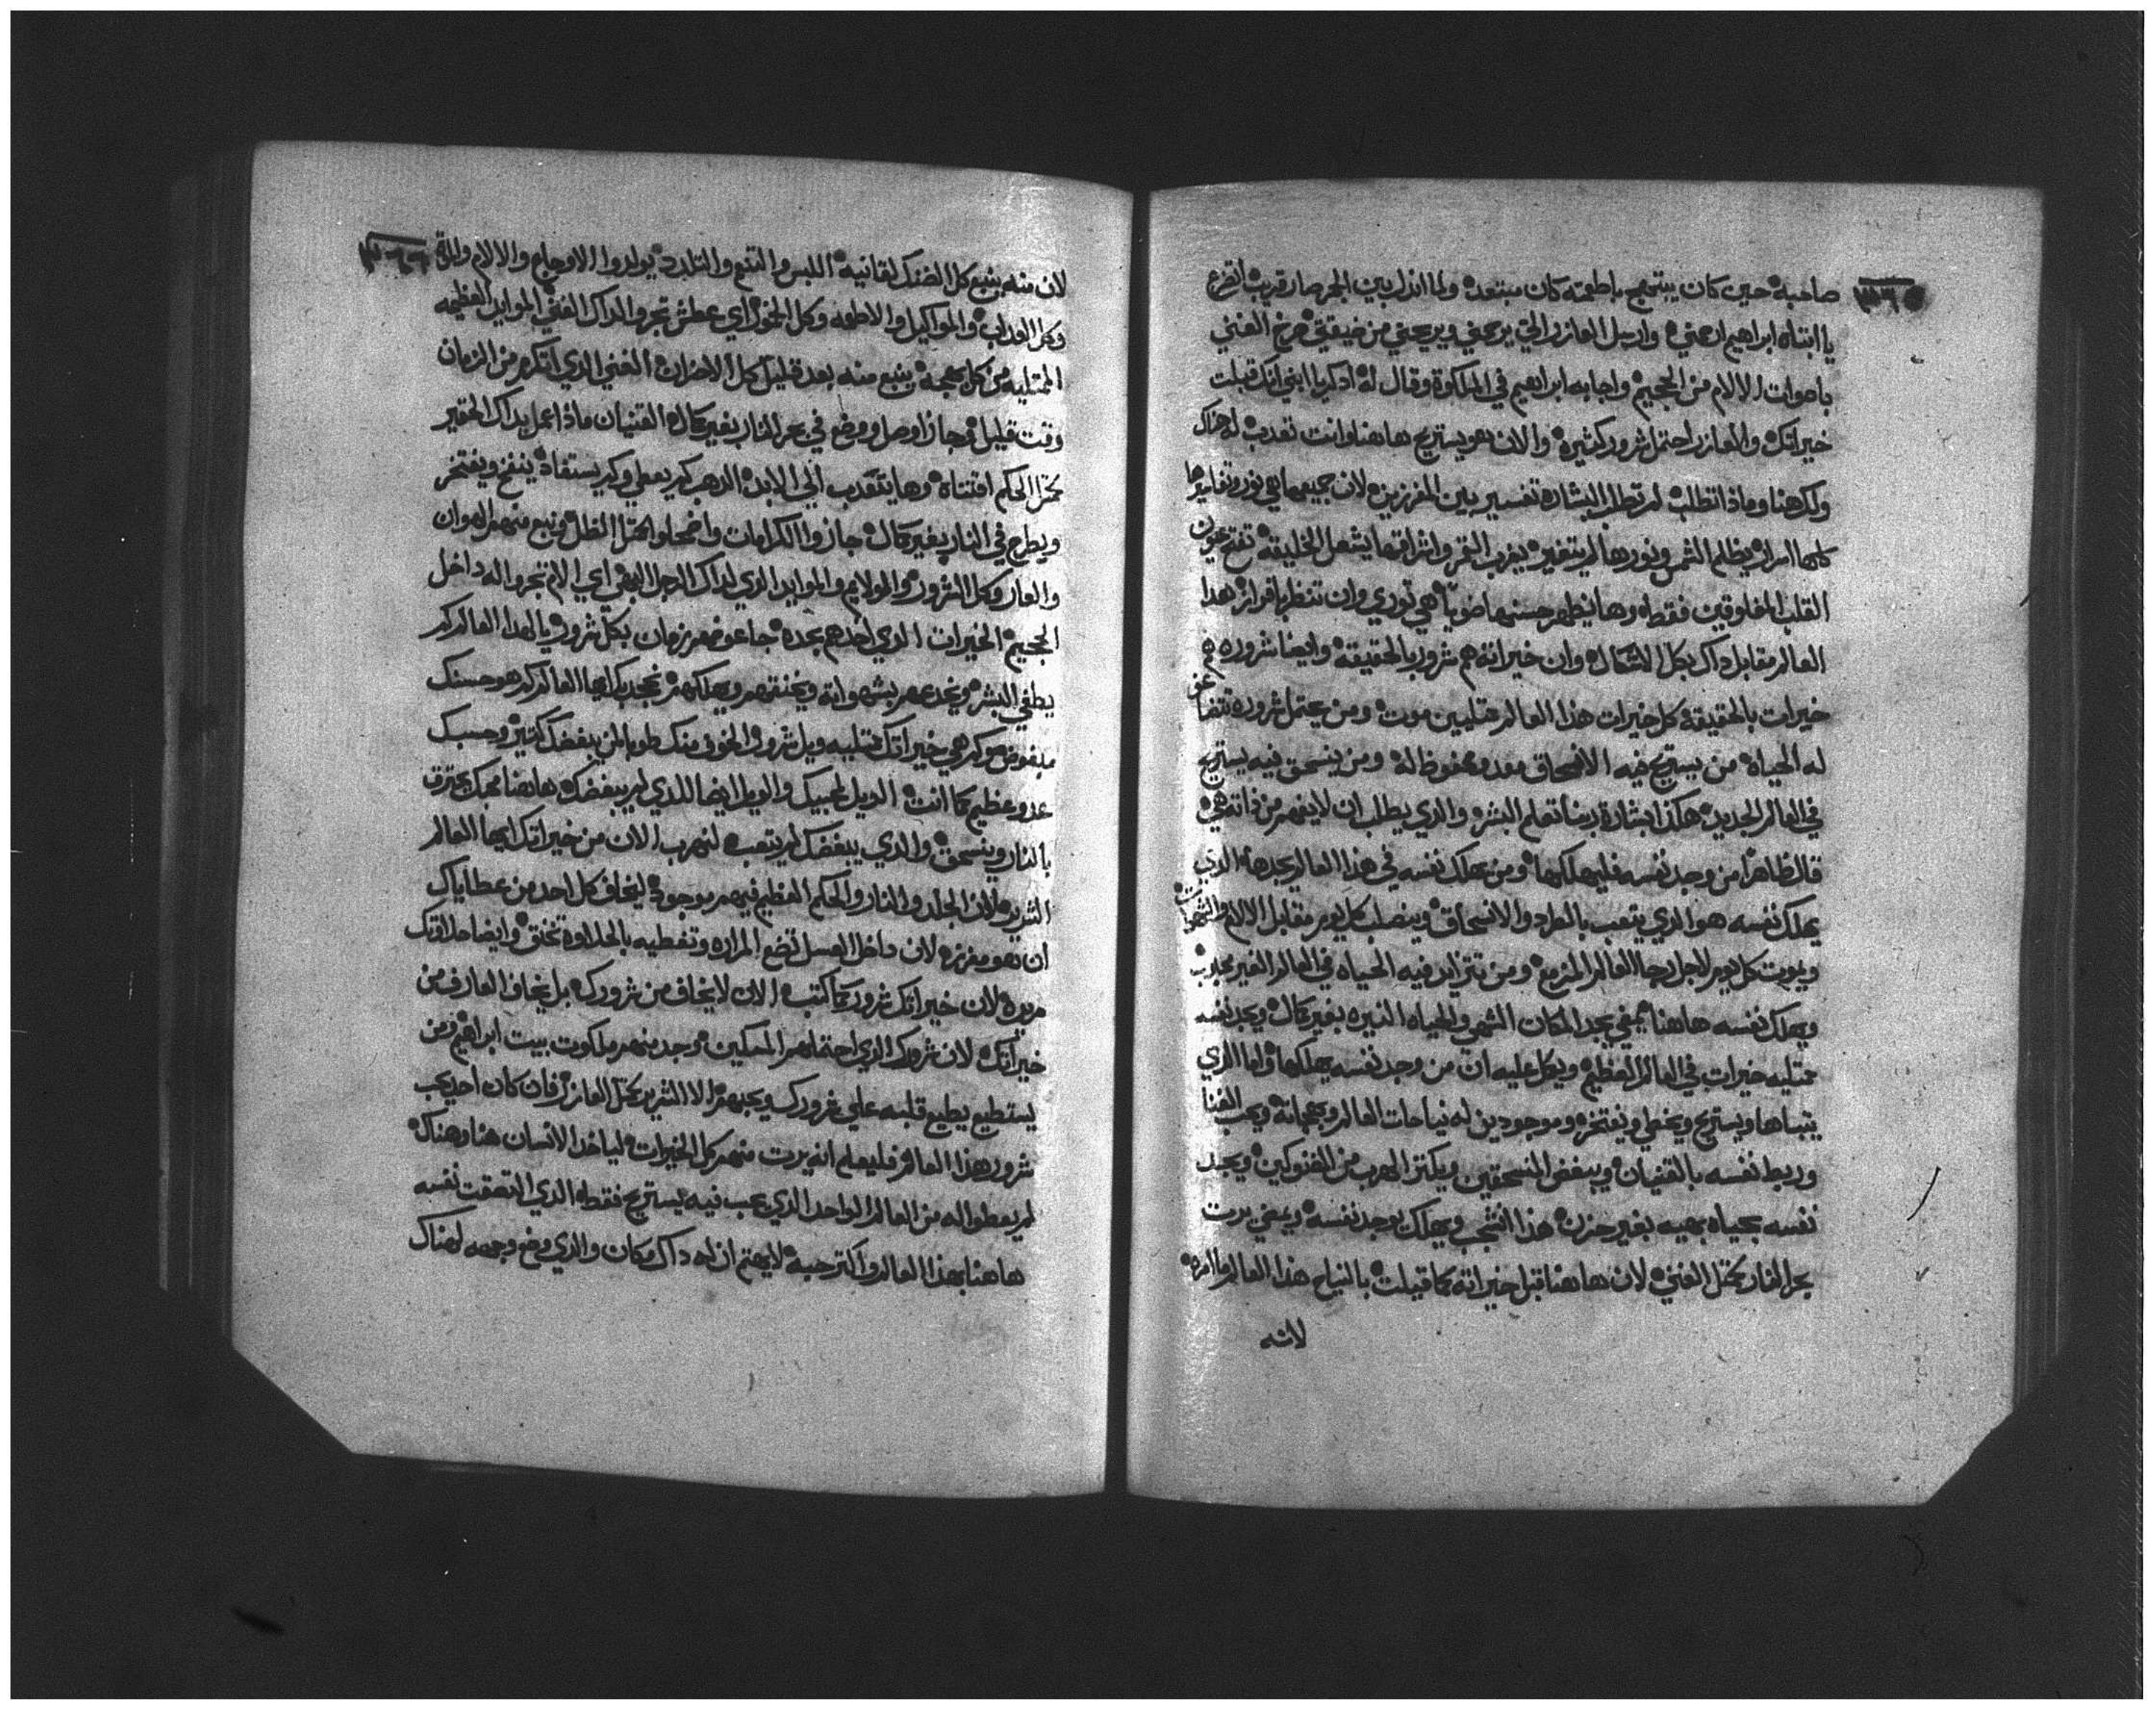 صاحبه حين كان يبتهج باطعمته كان مبتعد ولما انذل بين الجمر صار قريب اتضرع
يا ابتاه ابراهيم ارحمني وارسل العازر الي يرحمني ويريحني من ضيقتي صرخ الغني
باصوات الالام من الجحيم واجابه ابراهيم في الملكوة وقال له ادكر يا ابني انك قبلت
خيراتك والعازر احتمل شرور كثيره والان هو يستريح هاهنا وانت تعدب له هناك
ولك هنا وماذا تطلب لم تطلب البشاره تفسير بين المفرزين لان جميعها هي نور وتفاسيرها
كلها اسرار يظلم الشمس ونورها لم يتغير يغرب القمر واشراقها يشعل الخليقة تفتح عيون
القلب المخلوقين فقط وها يظهر حسنها ضويا هي توري وان تنظر بافراز هدا
العالم مقابل داك بكل الاشكال وان خيراته هم شرور بالحقيقه وايضا شروره هم
خيرات بالحقيقة كل خيرات هذا العالم ممتليين موت ومن يحتمل شروره تتضاعف
له الحياه من يستريح فيه الانسحاق مورد محفوظ له ومن ينسحق فيه يستريح
في العالم الجديد هكذا بشارة ربنا تعلم البشر والذي يطلب ان لا يفهم من ذاته هي
قال ظاهرا من وجد نفسه فليهلكها ومن يهلك نفسه في هذا العالم يجدها الذي
يهلك نفسه هو الذي يتعب بالطراد والانسحاق وينصلب كل يوم مقابل الالام والشهوات
ويموت كل يوم لاجل رجا العالم المزمع ومن تتزايد فيه الحياه في العالم الغير محبوب
ويهلك نفسه هاهنا يمضي يجد المكان الشهي والحياه النيره بغير كمال ويجد نفسه
ممتليه خيرات في العالم العظيم ويكمل عليه ان من وجد نفسه يهلكها واما الذي
يتباها ويستريح ويخطي ويفتخر وموجودين له نياحات العالم وبهجاته ويحب الغنا
وربط نفسه بالقنيان ويبغض المنسحقين ويكنز الدهب من الضنوكين ويجد
نفسه بحياه بهيه بغير حزن هذا الشجب ويهلك يوجد نفسه ويمضي يرت
بحر النار كمثل الغني لان هاهنا قبل خيراته كما قيلت بالنياح هذا العالم ما امره
لانه
لان منه ينبع كل الضنك لقانيه اللبس والتنعم والتلدد يولدوا الاوجاع والالام
وكل العداب والمواكيل والاطعمه وكل الخمور اي عطش تجروا لداك الغني الموايد العظيمه
الممتليه من كل بهجه ينبع منه بعد قليل كل الاحزان الغني الدي اتكرم من الزمان
وقت قليل وجاز اوصل ووضع في بحر النار بغير كمال القنيان ماذا عمل بداك الحقير
كمثل الحكم اقتناه وها يتعدب الي الابد الدهب كم يعطي وكم يستفاد ينفخ ويفتخر
ويطرح في النار بغير كمال جازوا الكرامات واضمحلوا كمثل الظل ونبع منهم الهوان
والعار وكل الشرور والولايم والموايد الذي لداك الرجل البهي اي الام تجروا له داخل
الجحيم الخيرات الدي اخدهم بجده جا عوضهم زمان بكل شرور يا لهدا العالم كم
يطغي البشر ويخدعهم بشهواته ويخنقهم ويهلكهم بمجدك ايها العالم كم هو حسنك
مبغوض وكم هي خيراتك ممتليه ويل شرور والخوف منك طوبا لمن يبغضك كثير وحسبك
عدو عظيم كما انت الويل لمحبيك والويل ايضا للدي لم يبغضك هاهنا محبك يحترق
بالنار وينسحق والدي يبغضك لم يتعب لنهرب الان من خيراتك ايها العالم
الشرير لان الجلد والنار والحكم العظيم فيهم موجود ليخاف كل احد من عطاياك
ان هو مفرز لان داخل العسل تضع المراره وتغطيه بالحلاوة تخنق وايضا حلاوتك
مريره لان خيراتك شرور كما كتب الان لا يخاف من شرورك بل يخاف العارف من
خيراتك لان شرورك الذي احتملهم المسكين وجد منهم ملكوت بيت ابراهيم من
يستطيع يطيع قلبه علي شرورك ويحبهم الا الشرير كمثل العازر فان كان احد يحب
شرور هذا العالم فليعلم انه يرت منهم كل الخيرات لياخد الانسان هنا وهناك
لم يعطوا له من العالم الواحد الذي يحب فيه يستريح فقط الدي التصقت نفسه
هاهنا بهذا العالم واكتر حبه لا يهتم ان له داك مكان والدي وضع وجهه لهناك